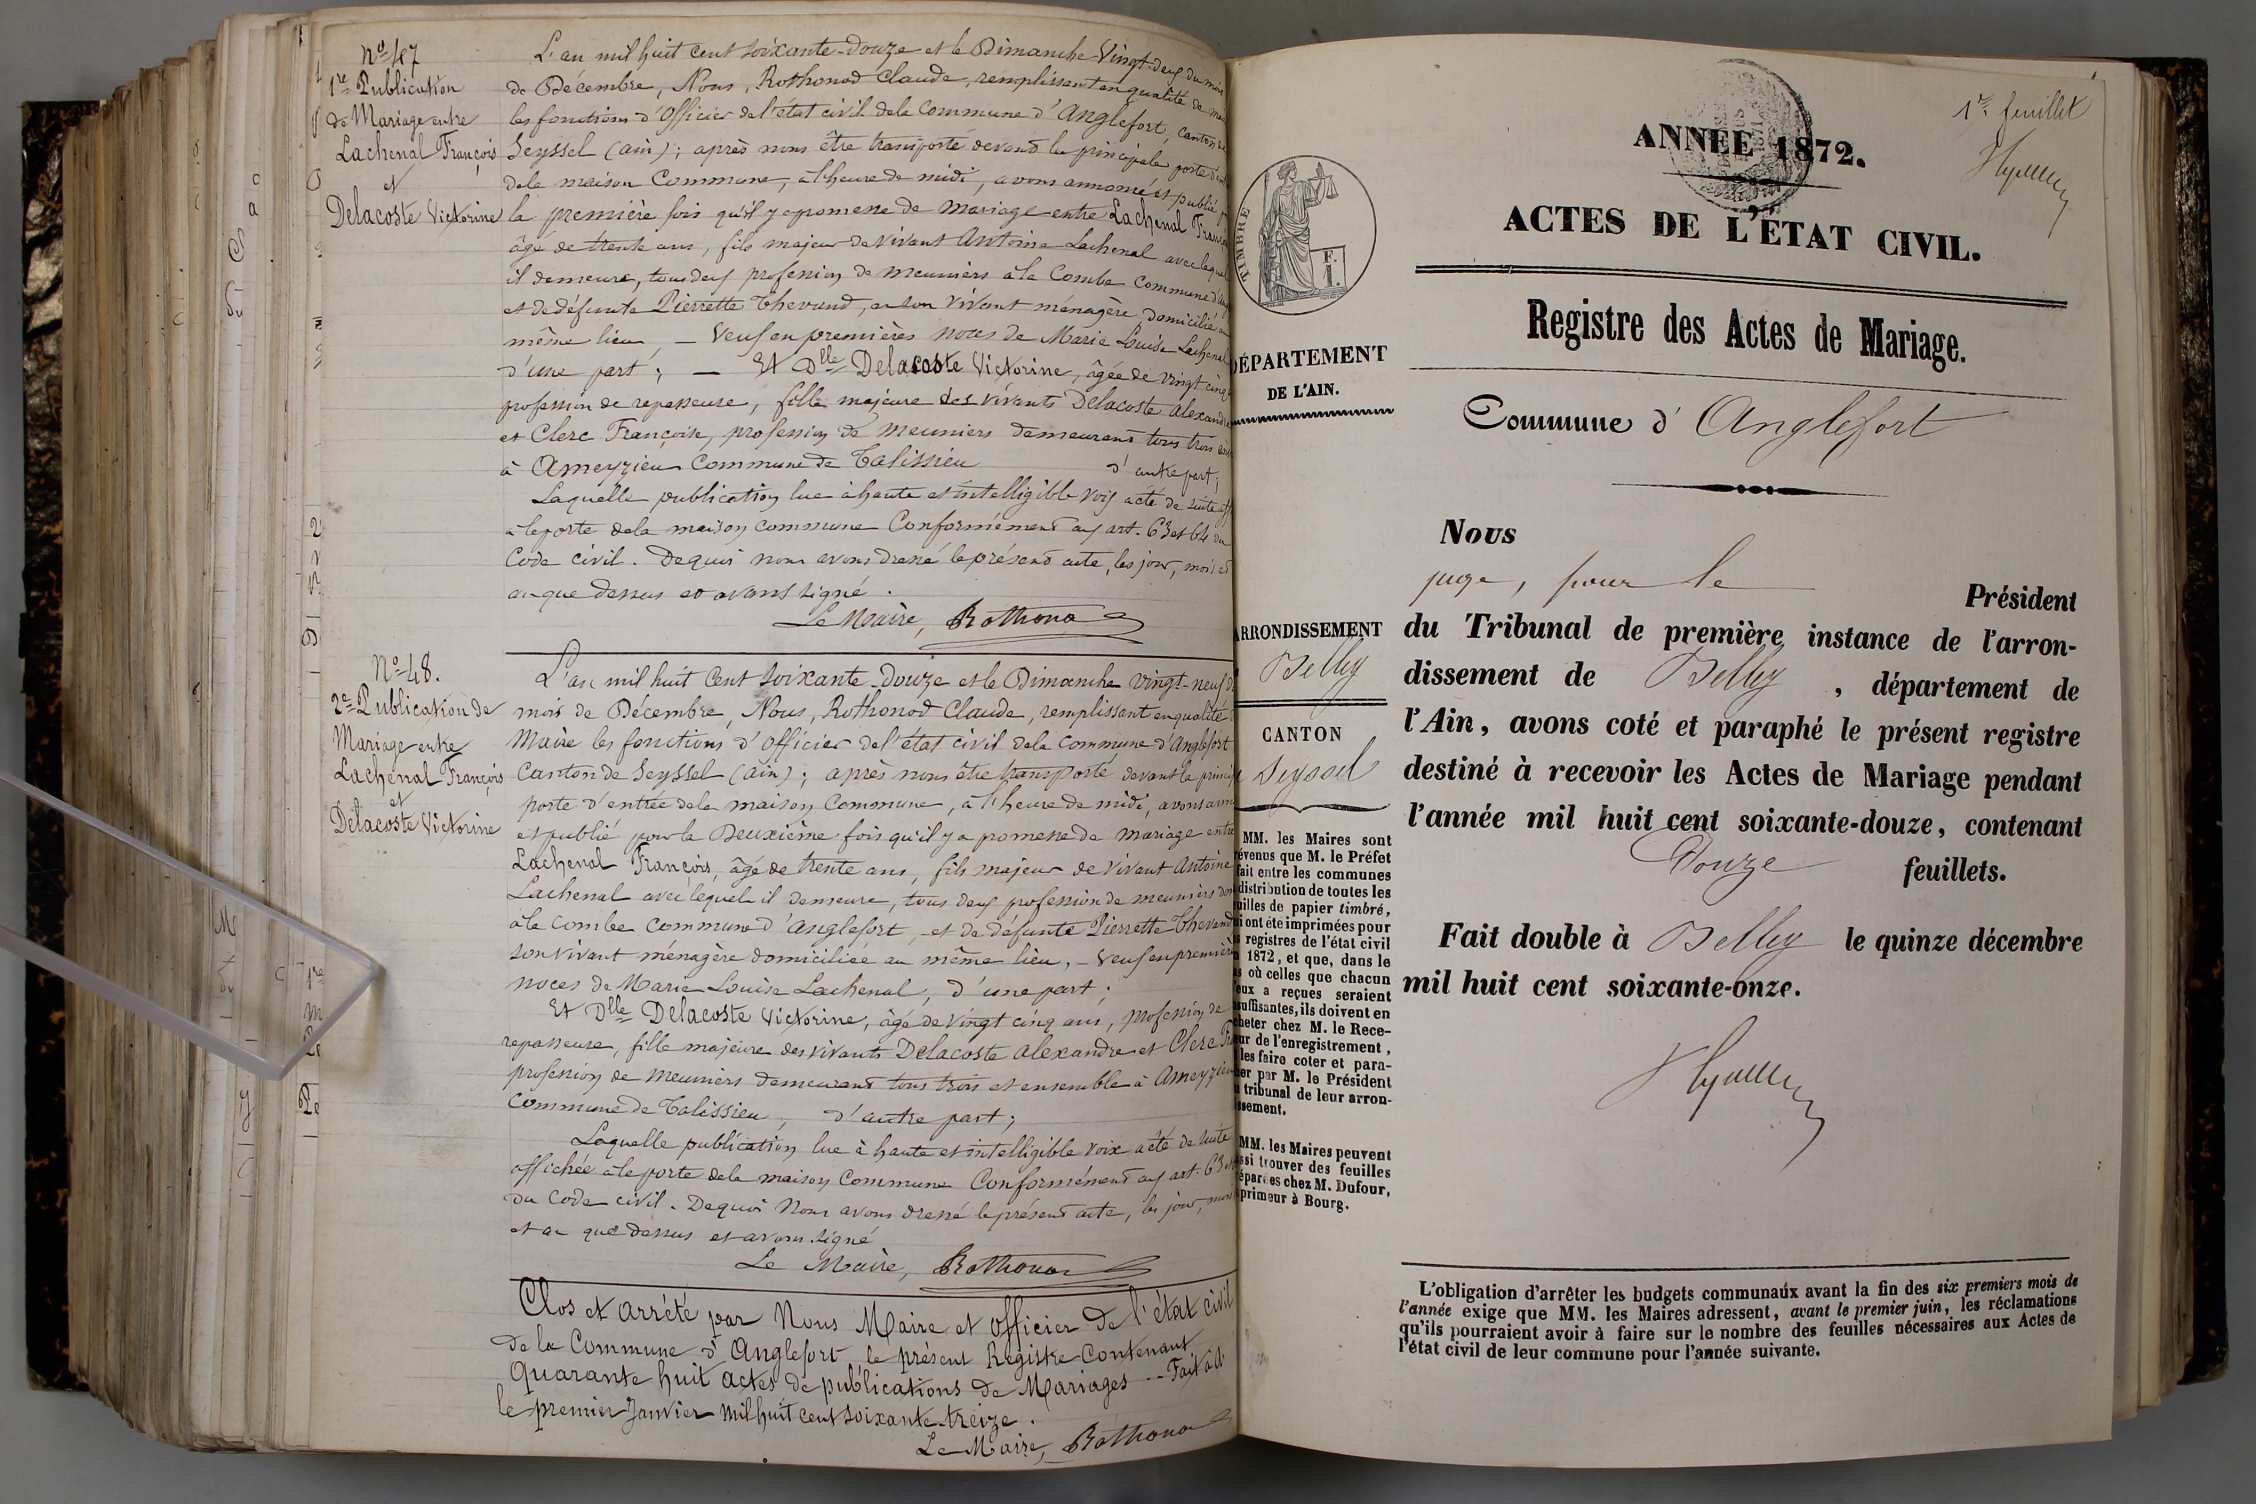 No 47
1re Publication
de Mariage entre
Lachenal François
et
Delacoste Victorine
L'an mil huit cent soixante-douze et le Dimanche Vingt-deux du mois
de Décembre, Nous, Rothonod Claude, remplissant en qualité de
les fonctions d'Officier de l'état civil de la Commune d'Anglefort, Canton de
Seyssel (ain); après nous être transporté devant la principale porte
de la maison Commune, à l'heure de midi, avons annoncé et publié
la première fois qu'il y a promesse de mariage entre Lachenal François
âgé de trente ans, fils majeur de vivant Antoine Lachenal avec lequel
il demeure, tous deux profession de meuniers à la Combe Commune
et de défunte Pierrette Thevand, en son vivant ménagère domiciliée au
même lieu, — Veuf en premières noces de Marie Louise Lachenal
d'une part; — Et Dlle Delacoste Victorine, âgée de vingt cinq
profession de repasseuse, fille majeure des vivants Delacoste Alexandre
et Clerc Françoise, profession de meuniers demeurant tous trois
à Ameyzieu Commune de Talissieu d'autre part;
Laquelle publication lue à haute et intelligible voix a été de suite
à la porte de la maison commune Conformément aux art. 63 et 64 du
Code civil. De quoi nous avons dressé le présent acte, les jour, mois et
an que dessus et avons signé.
Le Maire, Rothonod
No 48.
2e Publication de
Mariage entre
Lachenal François
et
Delacoste Victorine
L'an mil huit Cent soixante-douze et le Dimanche vingt-neuf du
mois de Décembre, Nous, Rothonod Claude, remplissant en qualité
Maire les fonctions d'Officier de l'état civil de la Commune d'Anglefort
Canton de Seyssel (ain); après nous être transporté devant la
porte d'entrée de la maison Commune, à l'heure de midi, avons
et publié pour la Deuxième fois qu'il y a promesse de mariage entre
Lachenal François, âgé de trente ans, fils majeur de vivant Antoine
Lachenal avec lequel il demeure, tous deux profession de meuniers
à la combe commune d'Anglefort, et de défunte Pierrette Thevand
son vivant ménagère domiciliée au même lieu, — Veuf en première
noces de Marie Louise Lachenal, d'une part;
Et Dlle Delacoste Victorine, âgé de vingt cinq ans, profession de
repasseuse, fille majeure des vivants Delacoste Alexandre et Clerc
profession de meuniers demeurant tous trois et ensemble à Ameyzieu
Commune de Talissieu, d'autre part;
Laquelle publication lue à haute et intelligible voix a été de suite
affichée à la porte de la maison Commune Conformément aux art. 63
du Code civil. De quoi Nous avons dressé le présent acte, les jour, mois
et an que dessus et avons signé
Le Maire, Rothonod
Clos et arrêté par Nous Maire et officier de l'état civil
de la Commune d'Anglefort le présent Registre Contenant
Quarante huit actes de publications de Mariages — Fait à
le premier Janvier mil huit cent soixante-treize.
Le Maire, Rothonod
1er feuillet
ANNÉE 1872.
ACTES DE L'ÉTAT CIVIL.
Registre des Actes de Mariage.
Commune d'Anglefort
TIMBRE
F.
I.
DÉPARTEMENT
DE L'AIN.
ARRONDISSEMENT
Belley
CANTON
Seyssel
MM. les Maires sont
prévenus que M. le Préfet
fait entre les communes
distribution de toutes les
feuilles de papier timbré,
qui ont été imprimées pour
registres de l'état civil
1872, et que, dans le
cas où celles que chacun
d'eux a reçues seraient
insuffisantes, ils doivent en
acheter chez M. le Rece-
veur de l'enregistrement,
les faire coter et para-
pher par M. le Président
du tribunal de leur arron-
dissement.
MM. les Maires peuvent
aussi trouver des feuilles
séparées chez M. Dufour,
imprimeur à Bourg.
Nous
juge, pour le Président
du Tribunal de première instance de l'arron-
dissement de Belley, département de
l'Ain, avons coté et paraphé le présent registre
destiné à recevoir les Actes de Mariage pendant
l'année mil huit cent soixante-douze, contenant
Douze feuillets.
Fait double à Belley le quinze décembre
mil huit cent soixante-onze.
L'obligation d'arrêter les budgets communaux avant la fin des six premiers mois de
l'année exige que MM. les Maires adressent, avant le premier juin, les réclamations
qu'ils pourraient avoir à faire sur le nombre des feuilles nécessaires aux Actes de
l'état civil de leur commune pour l'année suivante.